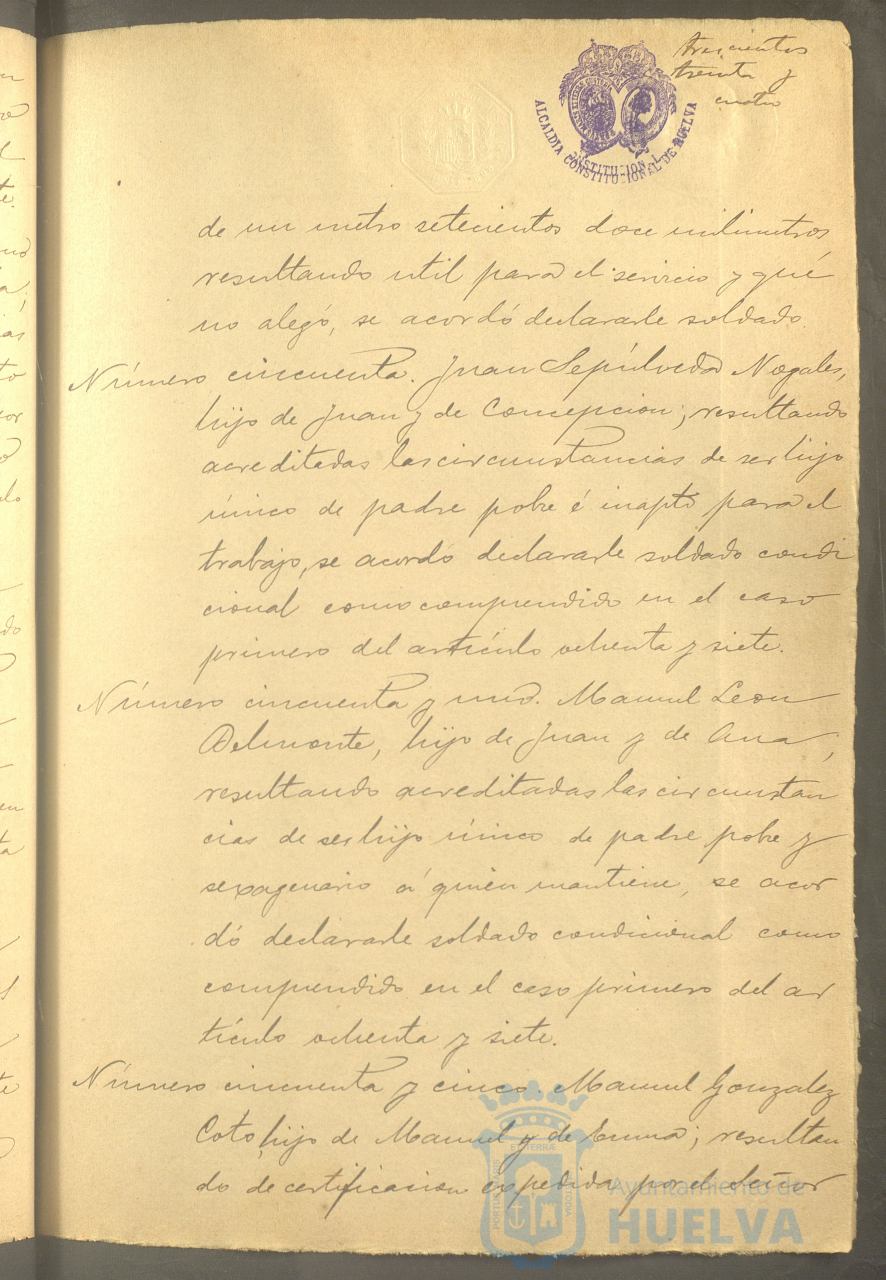 trescientos
treinta y
cuatro
ALCALDIA CONSTITUCIONAL DE HUELVA
de un metro setecientos doce milimetros
resultando util para el servicio y qué
no alegó, se acordó declararle soldado.
Número cincuenta. Juan Sepúlveda Nogales,
hijo de Juan y de Concepcion; resultando
acreditadas las circunstancias de ser hijo
único de padre pobre é inapto para el
trabajo, se acordó declararle soldado condi
cional como comprendido en el caso
primero del artículo ochenta y siete.
Número cincuenta y uno. Manuel Leon
Belmonte, hijo de Juan y de Ana;
resultando acreditadas las circunstan
cias de ser hijo único de padre pobre y
sexagenario á quien mantiene, se acor
dó declararle soldado condicional como
comprendido en el caso primero del ar
tículo ochenta y siete.
Número cincuenta y cinco Manuel Gonzalez
Coto, hijo de Manuel y de Emma; resultan
do de certificacion expedida por el Señor
Ayuntamiento de
HUELVA